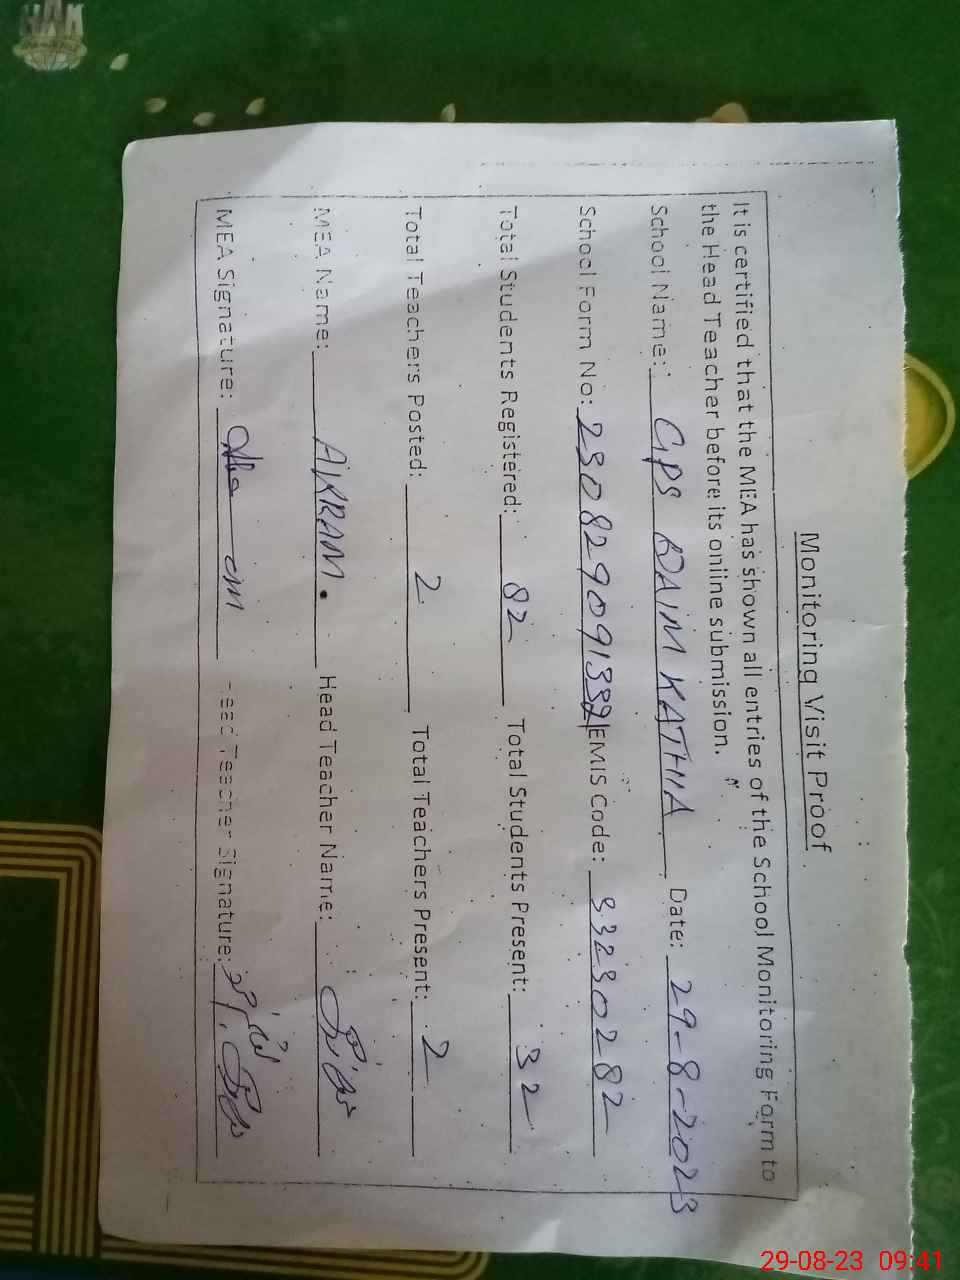 Monitoring Visit Proof
It is certified that the MEA has shown all entries of the School Monitoring Form to
the Head Teacher before its online submission.
School Name: GPS RAIM KATHIA Date: 29-8-2023
School Form No: EMIS Code:
Total Students Registered: 82 Total Students Present: 32
Total Teachers Posted: 2 Total Teachers Present: 2
MEA Name: AKRAM. Head Teacher Name:
MEA Signature: Head Teacher Signature:
29-08-23 09:41